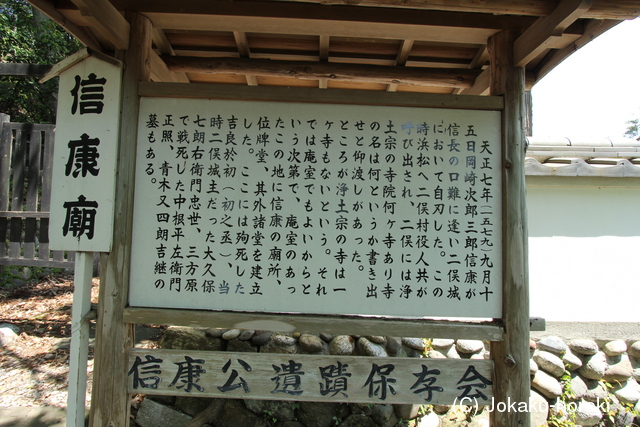 信康廟
天正七年(一五七九)九月十
五日岡崎次郎三郎信康が
信長の口難に逢い二俣城
において自刃した。この
時浜松へ二俣村役人共が
呼び出され、二俣には浄
土宗の寺院何ヶ寺あり寺
の名は何というか書き出
せと仰渡しがあった。
ところが浄土宗の寺は一
ヶ寺もないという。それ
では庵室でもよいからと
いう次第で、庵室のあっ
たこの地に信康の廟所、
位牌堂、其外諸堂を建立
した。ここには殉死した
吉良於初(初之丞)、当
時二俣城主だった大久保
七朗右衛門忠世、三方原
で戦死した中根平左衛門
正照、青木又四朗吉継の
墓もある。
信康公遺蹟保存会
(C) Jokaku-Horoki